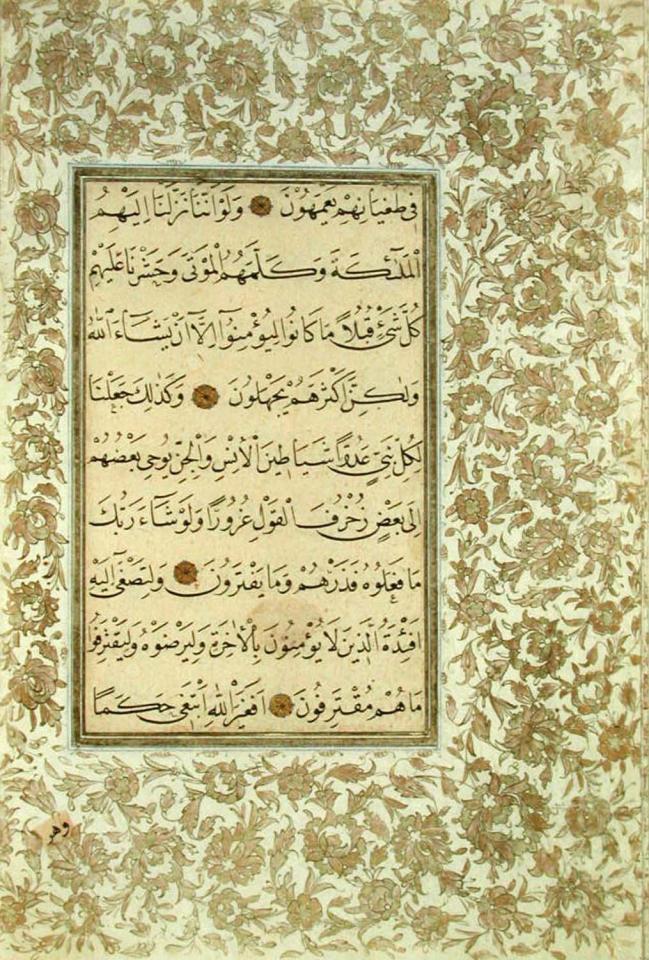 فِي طُغْيَانِهِمْ يَعْمَهُونَ وَلَوْ اَنَّنَا نَزَّلْنَا اِلَيْهِمُ
الْمَلٰئِكَةَ وَكَلَّمَهُمُ الْمَوْتٰى وَحَشَرْنَا عَلَيْهِمْ
كُلَّ شَىْءٍ قُبُلًا مَا كَانُوا لِيُؤْمِنُوٓا اِلَّآ اَنْ يَشَآءَ اللّٰهُ
وَلٰكِنَّ اَكْثَرَهُمْ يَجْهَلُونَ وَكَذٰلِكَ جَعَلْنَا
لِكُلِّ نَبِىٍّ عَدُوًّا شَيَاطِينَ الْاِنْسِ وَالْجِنِّ يُوحِى بَعْضُهُمْ
اِلٰى بَعْضٍ زُخْرُفَ الْقَوْلِ غُرُورًا وَلَوْ شَآءَ رَبُّكَ
مَا فَعَلُوهُ فَذَرْهُمْ وَمَا يَفْتَرُونَ وَلِتَصْغٰٓى اِلَيْهِ
اَفْئِدَةُ الَّذِينَ لَا يُؤْمِنُونَ بِالْاٰخِرَةِ وَلِيَرْضَوْهُ وَلِيَقْتَرِفُوا
مَا هُمْ مُقْتَرِفُونَ اَفَغَيْرَ اللّٰهِ اَبْتَغِى حَكَمًا
وهو